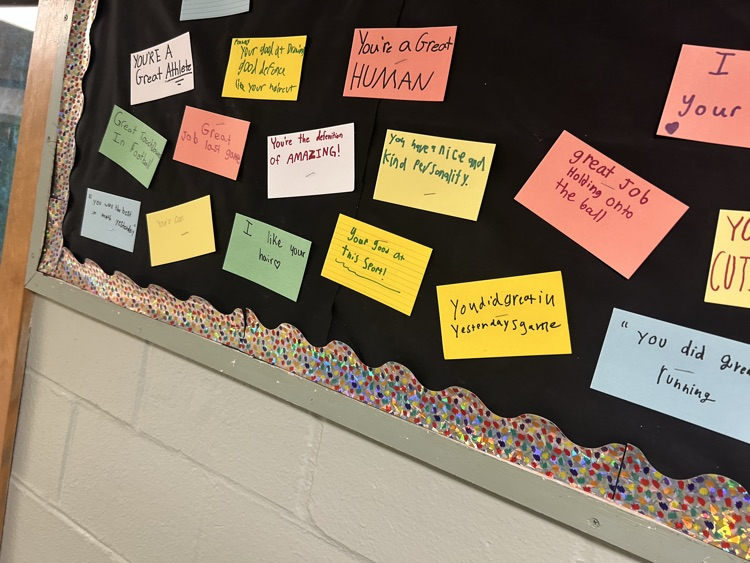 YOU'RE A
Great Athlete
your good at
good defence
like your haircut
You're a Great
HUMAN
I
your
Great
In Football
Great
Job last game
You're the defenition
of AMAZING!
You have a nice and
kind Personality.
great Job
Holding onto
the ball
"you were the best
yesterday"
You're
I like your
hair
Your good at
this Sport!
You did great in
Yesterdays game
YO
CUT
"you did grea
running